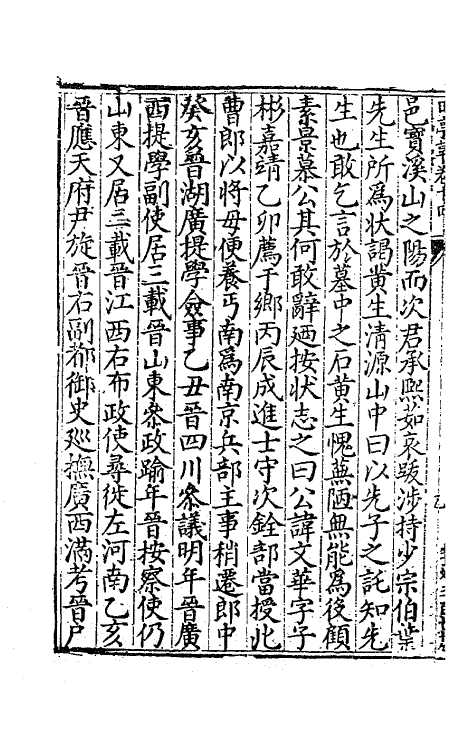 邑寶溪山之陽而次君承熙茹哀跋涉持少宗伯葉
先生所爲狀謁黄生清源山中曰以先子之託知先
生也敢乞言於墓中之石黄生愧蕪陋無能爲後顧
素景慕公其何敢辭廼按狀志之曰公諱文華字子
彬嘉靖乙卯薦于鄉丙辰成進士守次銓部當授比
曹郎以將母便養丐南爲南京兵部主事稍遷郎中
癸亥晉湖廣提學僉事乙丑晉四川叅議明年晉廣
西提學副使居三載晉山東叅政踰年晉按察使仍
山東又居三載晉江西右布政使尋從左河南乙亥
晉應天府尹旋晉右副都御史廵撫廣西滿考晉戶